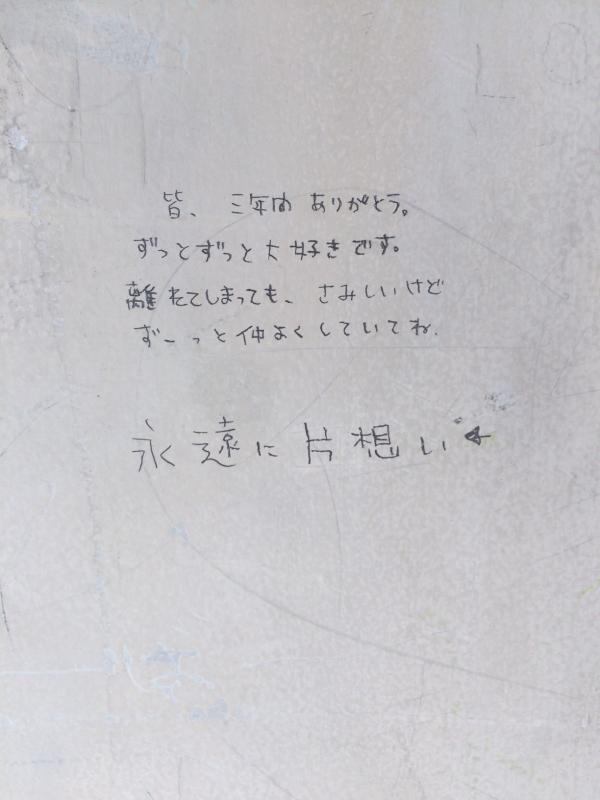 皆、三年間ありがとう。
ずっとずっと大好きです。
離れてしまっても、さみしいけど
ずーっと仲よくしていてね.
永遠に片想い